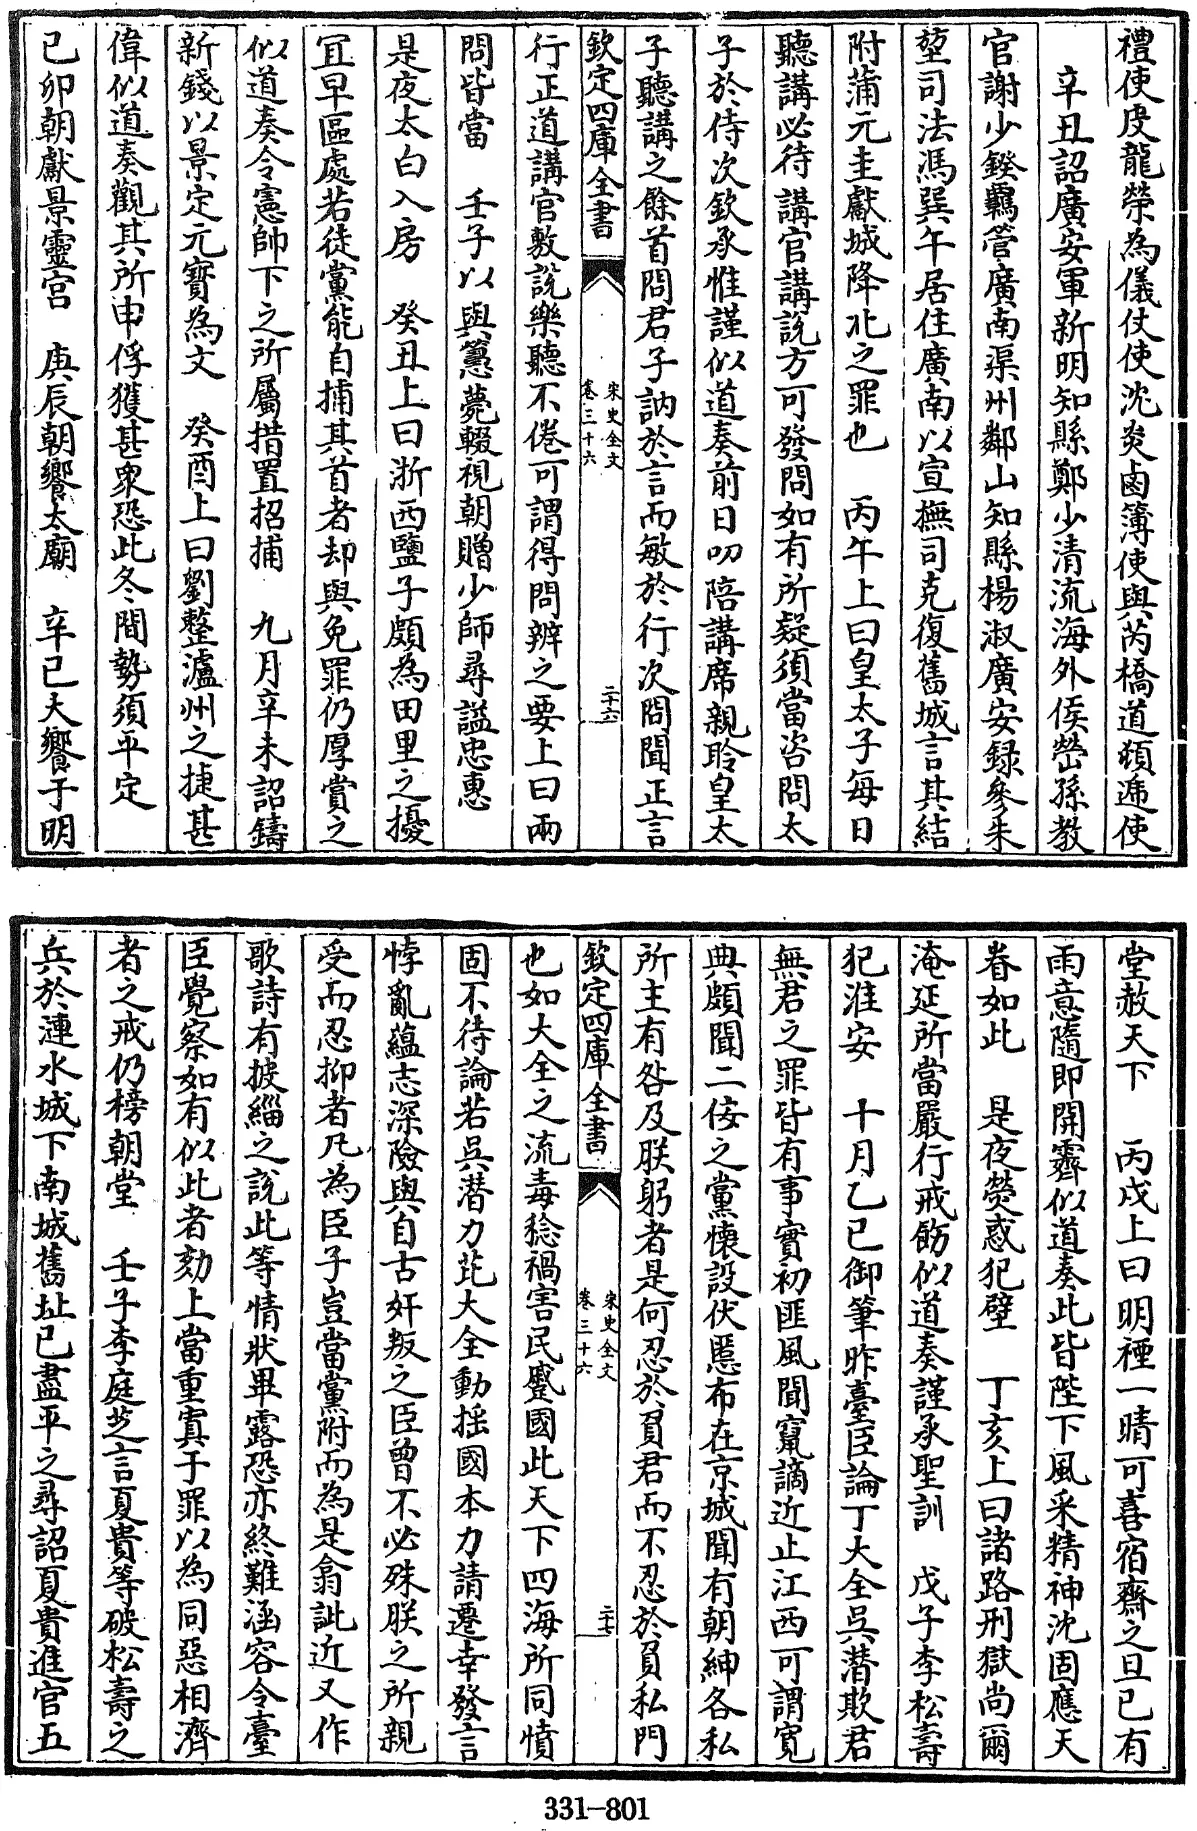 禮使皮龍榮為儀仗使沈炎鹵簿使與芮橋道頓遞使
辛丑詔廣安軍新明知縣鄭少清流海外侯塋孫教
官謝少鍨羈管廣南渠州鄰山知縣楊淑廣安録參朱
堃司法馮巽午居住廣南以宣撫司克復舊城言其結
附蒲元圭獻城降北之罪也　丙午上曰皇太子每日
聽講必待講官講說方可發問如有所疑須當咨問太
子於侍次欽承惟謹似道奏前日叨陪講席親聆皇太
子聽講之餘首問君子訥於言而敏於行次問聞正言
欽定四庫全書
宋史全文
卷三十六
二十六
行正道講官敷說樂聽不倦可謂得問辨之要上曰兩
問皆當　壬子以與𢥠薨輟視朝贈少師尋諡忠惠
是夜太白入房　癸丑上曰浙西鹽子頗為田里之擾
宜早區處若徒黨能自捕其首者却與免罪仍厚賞之
似道奏令憲帥下之所屬措置招捕　九月辛未詔鑄
新錢以景定元寶為文　癸酉上曰劉整瀘州之捷甚
偉似道奏觀其所申俘獲甚衆恐此冬間勢須平定
己卯朝獻景靈宮　庚辰朝饗太廟　辛巳大饗于明
堂赦天下　丙戌上曰明禋一晴可喜宿齋之旦已有
雨意隨即開霽似道奏此皆陛下風采精神沈固應天
眷如此　是夜熒惑犯壁　丁亥上曰諸路刑獄尚爾
淹延所當嚴行戒飭似道奏謹承聖訓　戊子李松壽
犯淮安　十月乙巳御筆昨臺臣論丁大全吳潛欺君
無君之罪皆有事實初匪風聞竄謫近止江西可謂寛
典頗聞二侫之黨懷設伏慝布在京城聞有朝紳各私
所主有咎及朕躬者是何忍於負君而不忍於負私門
欽定四庫全書
宋史全文
卷三十六
二十七
也如大全之流毒稔禍害民蹙國此天下四海所同憤
固不待論若吳潛力芘大全動揺國本力請遷幸發言
悖亂蘊志深險與自古奸叛之臣曾不必殊朕之所親
受而忍抑者凡為臣子豈當黨附而為是翕訿近又作
歌詩有披緇之說此等情狀畢露恐亦終難涵容令臺
臣覺察如有似此者劾上當重寘于罪以為同惡相濟
者之戒仍榜朝堂　壬子李庭芝言夏貴等破松壽之
兵於漣水城下南城舊址已盡平之尋詔夏貴進官五
331-801